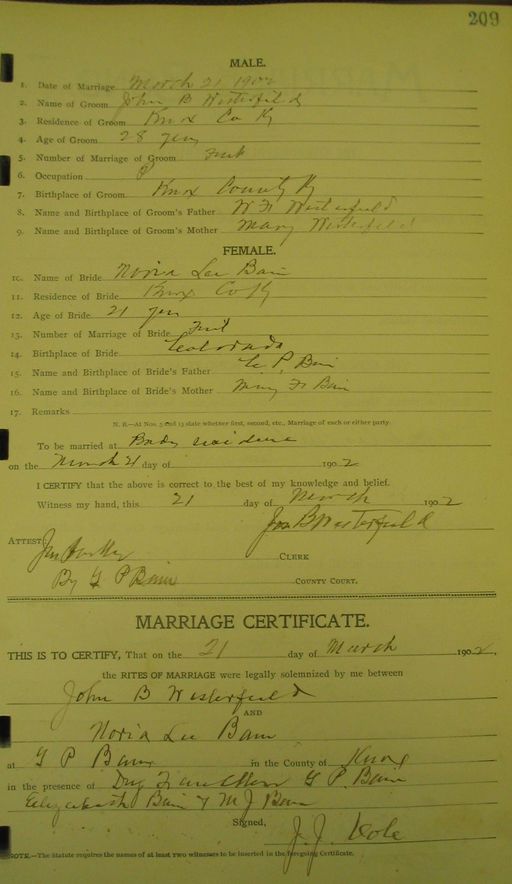 209
MALE.
1. Date of Marriage March 21 1902
2. Name of Groom John B Westerfield
3. Residence of Groom Knox Co Ky
4. Age of Groom 28 years
5. Number of Marriage of Groom First
6. Occupation
7. Birthplace of Groom Knox County Ky
8. Name and Birthplace of Groom's Father W H Westerfield
9. Name and Birthplace of Groom's Mother Mary Westerfield
FEMALE.
10. Name of Bride Noria Lee Bain
11. Residence of Bride Knox Co Ky
12. Age of Bride 21 years
13. Number of Marriage of Bride First
14. Birthplace of Bride Colorado
15. Name and Birthplace of Bride's Father G. P. Bain
16. Name and Birthplace of Bride's Mother Mary Bain
17. Remarks
N. B.—At Nos. 5 and 13 state whether first, second, etc., Marriage of each or either party
To be married at Brides residence
on the March 21 day of 1902
I CERTIFY that the above is correct to the best of my knowledge and belief.
Witness my hand, this 21 day of March 1902
Jno B Westerfield
ATTEST
CLERK
By G P Bain COUNTY COURT.
MARRIAGE CERTIFICATE.
THIS IS TO CERTIFY, That on the 21 day of March 1902.
the RITES OF MARRIAGE were legally solemnized by me between
John B Westerfield
AND
Noria Lee Bain
at G P Bains in the County of Knox
in the presence of G. P. Bain
Elizabeth Bain & M J Bain
Signed,
J. J. Cole
NOTE.—The Statute requires the names of at least two witnesses to be inserted in the foregoing Certificate.